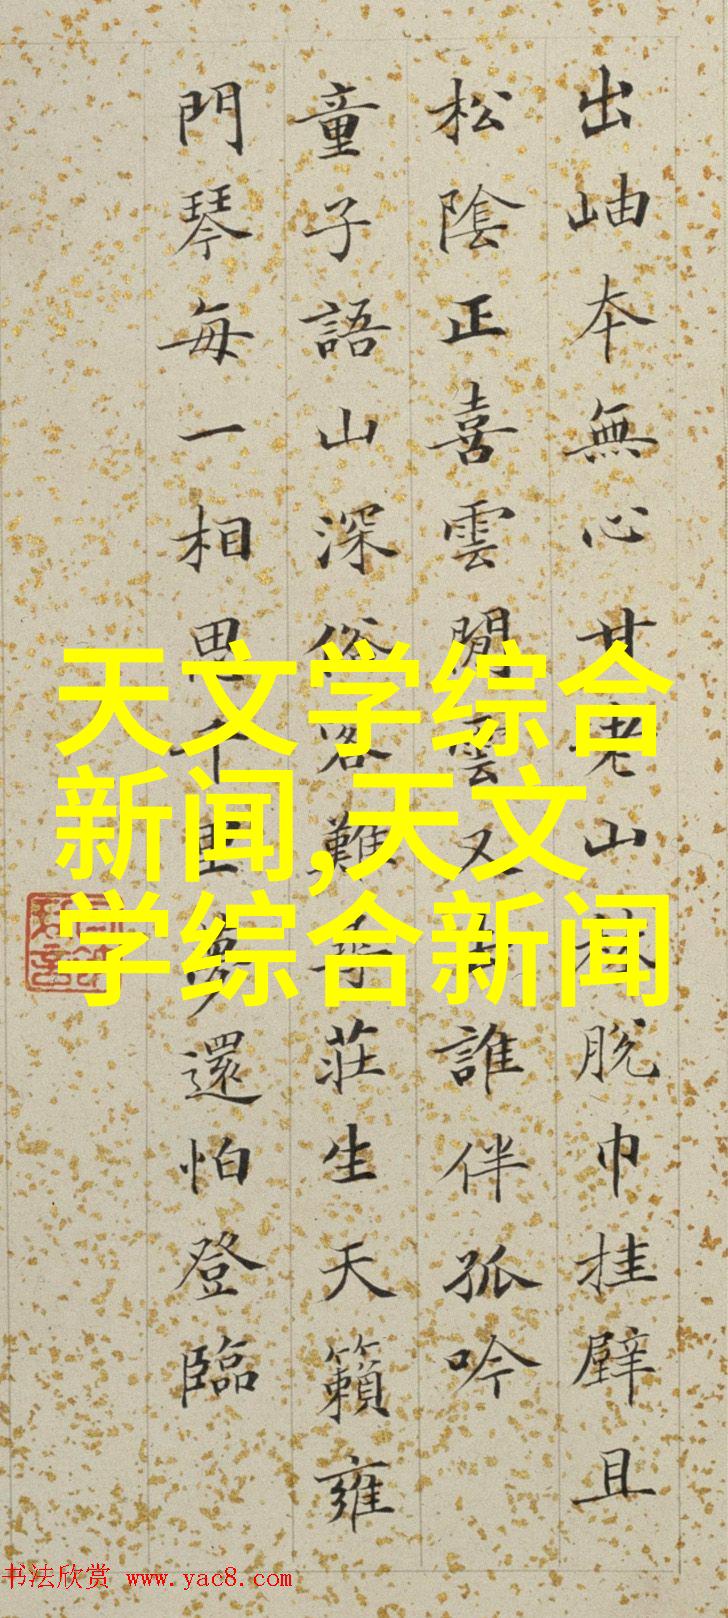 出岫本無心甘老山林脫巾挂壁且
松陰正喜雲閒雲又誰伴孤吟
童子語山深俗客難尋莊生天籟雍
門琴每一相思千里夢還怕登臨
天文学综合
新闻,天文
学综合新闻
书法欣赏 www.yac8.com